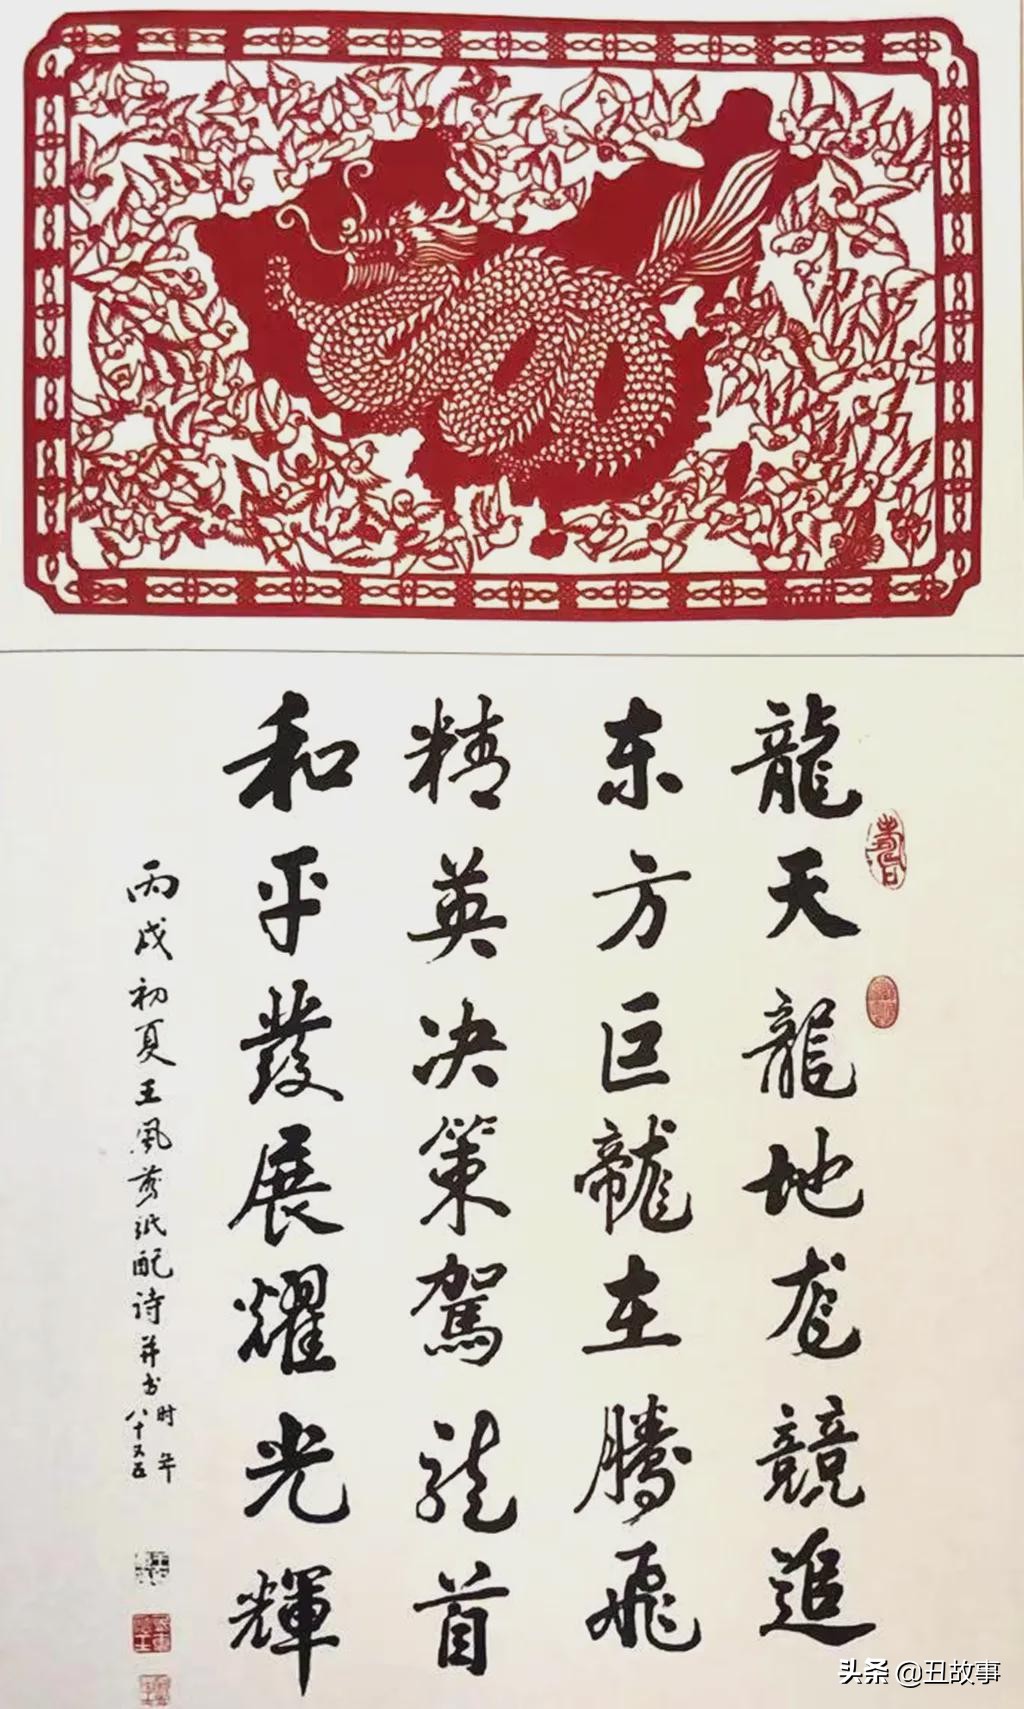 龍天龍地龙競追
东方巨龍在腾飛
精英决策駕龙首
和平發展耀光輝
丙戌初夏王風剪纸配诗并书时年八十又五
头条 @丑故事